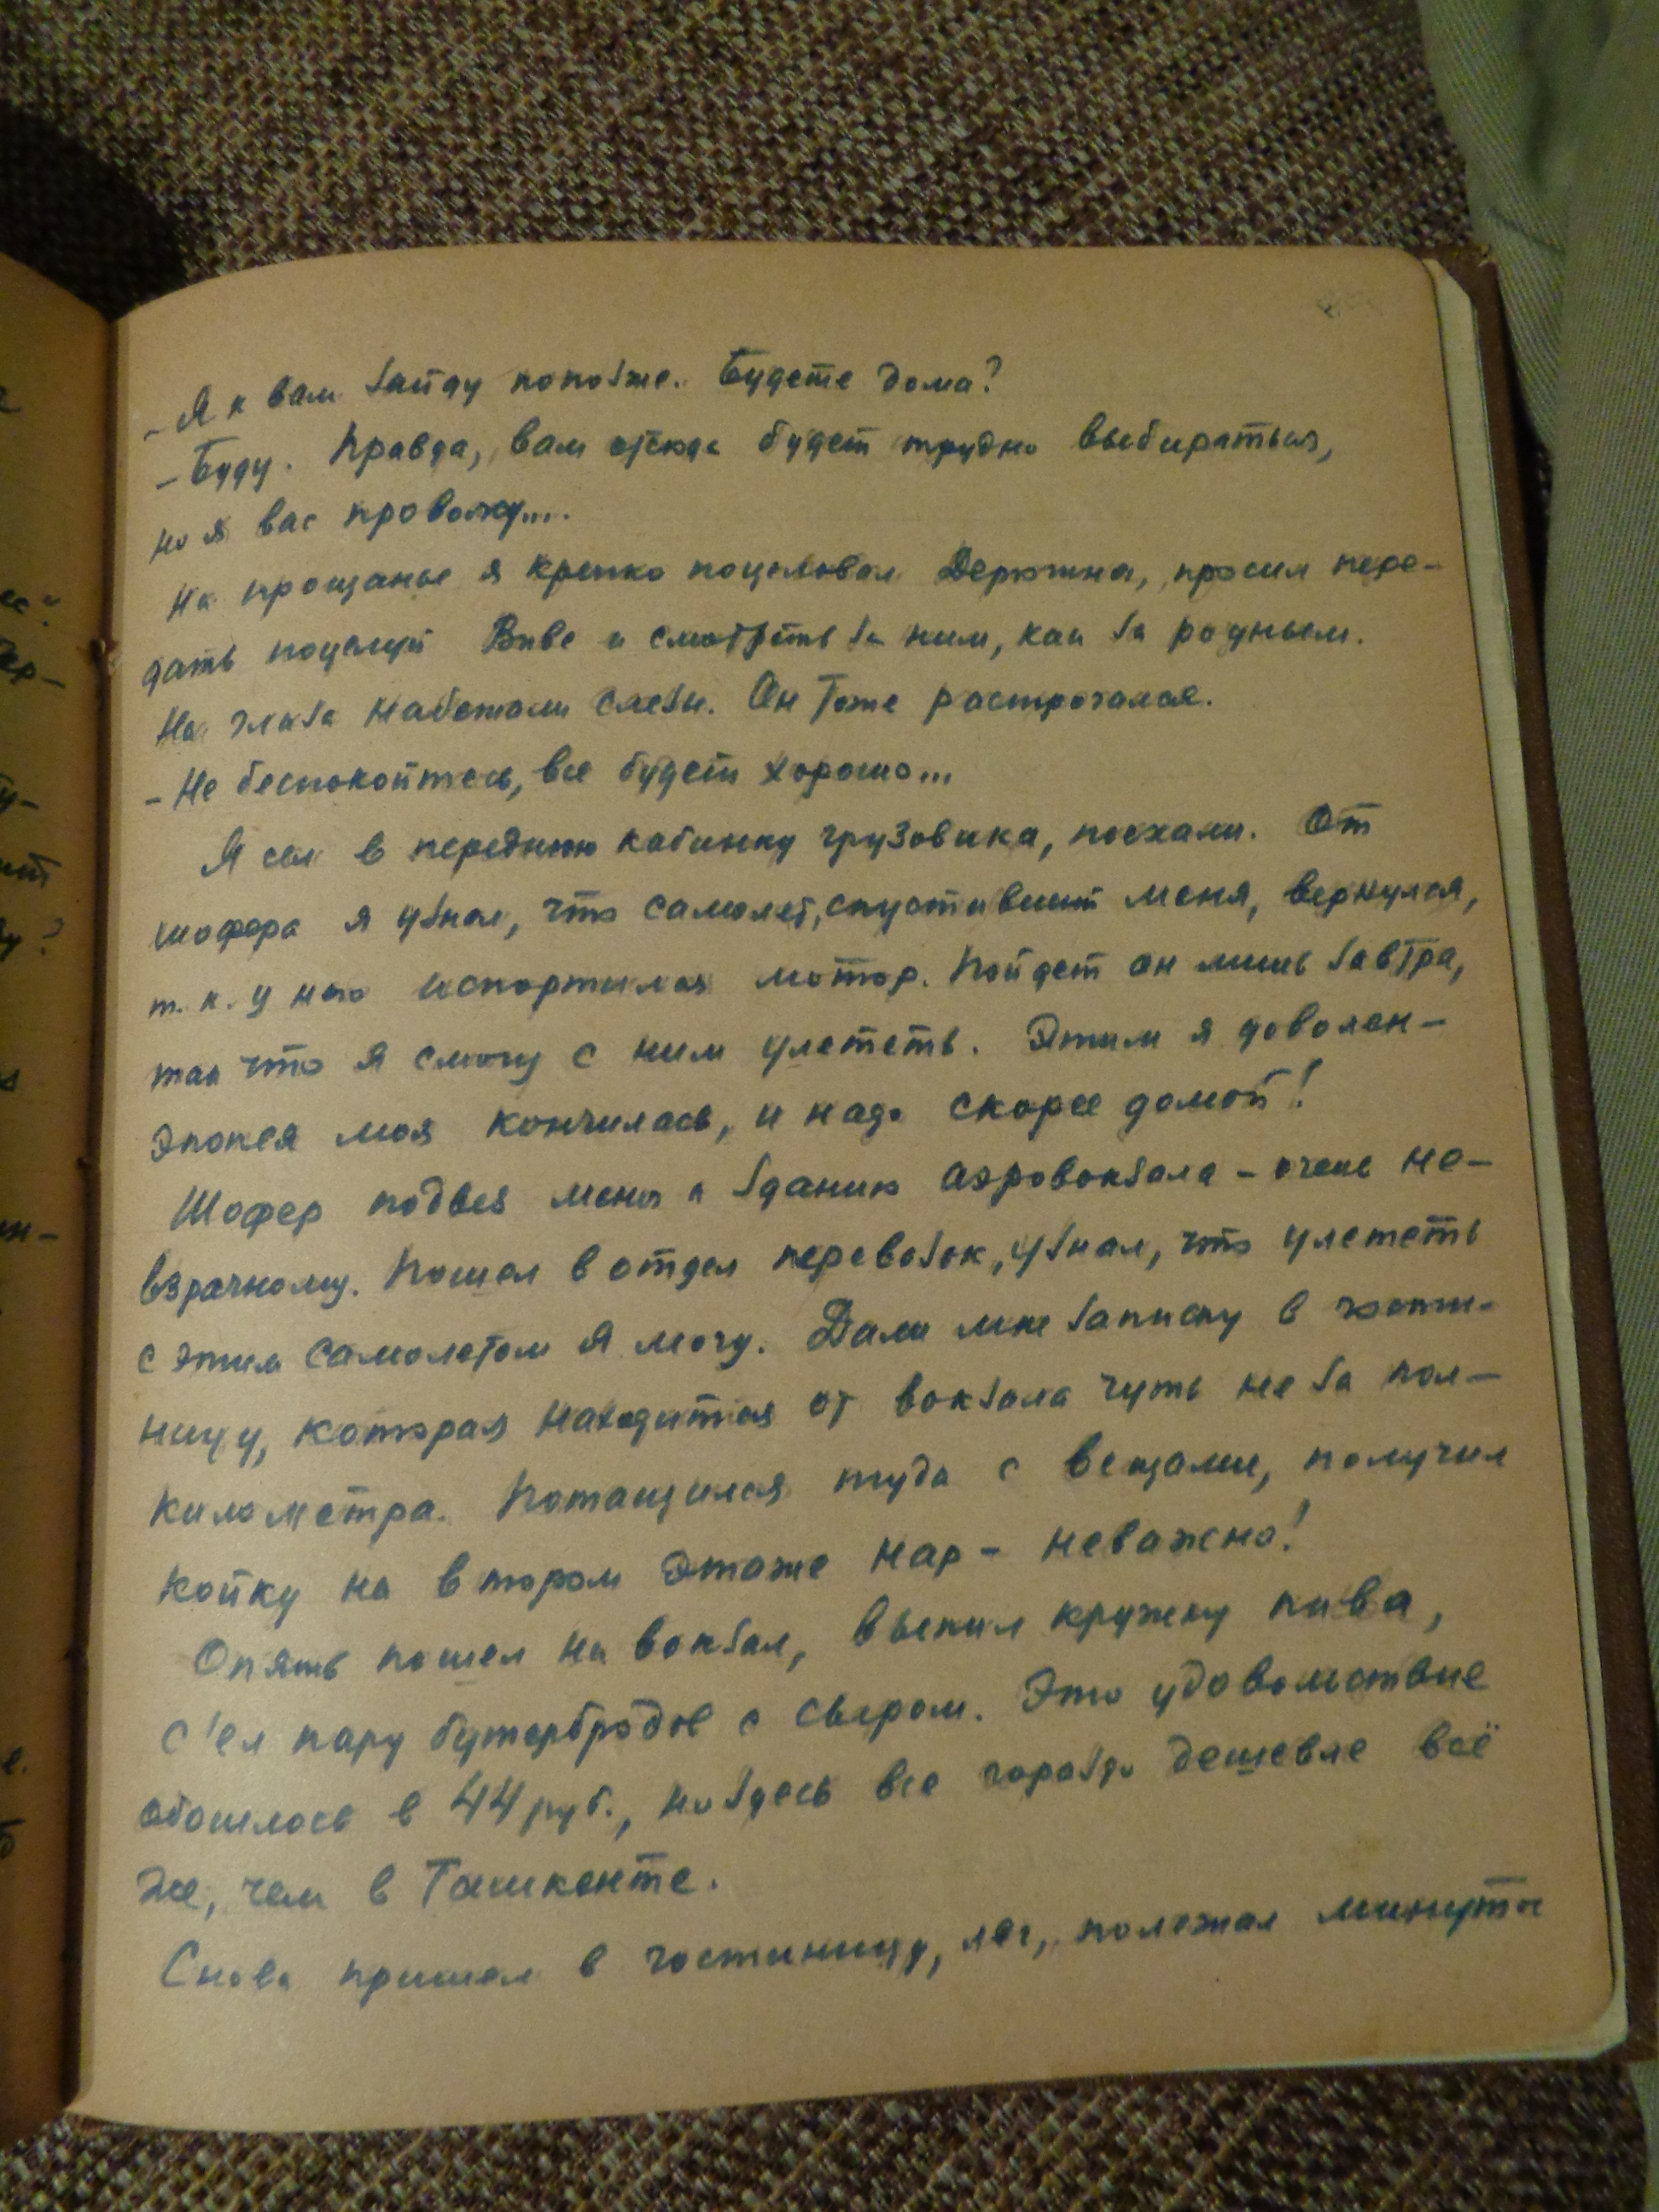 - Я к вам зайду попозже. Будете дома?
- Буду. Правда, вам отсюда будет трудно выбираться,
но я вас провожу....
На прощанье я крепко поцеловал Дерюгина, просил пере-
дать поцелуй Виве и смотреть за ним, как за родным.
На глаза набежали слезы. Он тоже растрогался.
- Не беспокойтесь, все будет хорошо...
Я сел в переднюю кабинку грузовика, поехали. От
шофера я узнал, что самолет, спустивший меня, вернулся,
т. к. у него испортился мотор. Пойдет он лишь завтра,
так что я смогу с ним улететь. Этим я доволен -
эпопея моя кончилась, и надо скорее домой!
Шофер подвез меня к зданию аэровокзала - очень не-
взрачному. Пошел в отдел перевозок, узнал, что улететь
с этим самолетом я могу. Дали мне записку в гости-
ницу, которая находится от вокзала чуть не за пол-
километра. Потащился туда с вещами, получил
койку на втором этаже нар - неважно!
Опять пошел на вокзал, выпил кружку пива,
с'ел пару бутербродов с сыром. Это удовольствие
обошлось в 44 руб., но здесь все гораздо дешевле всё
же, чем в Ташкенте.
Снова пришел в гостиницу, лег, полежал минуты